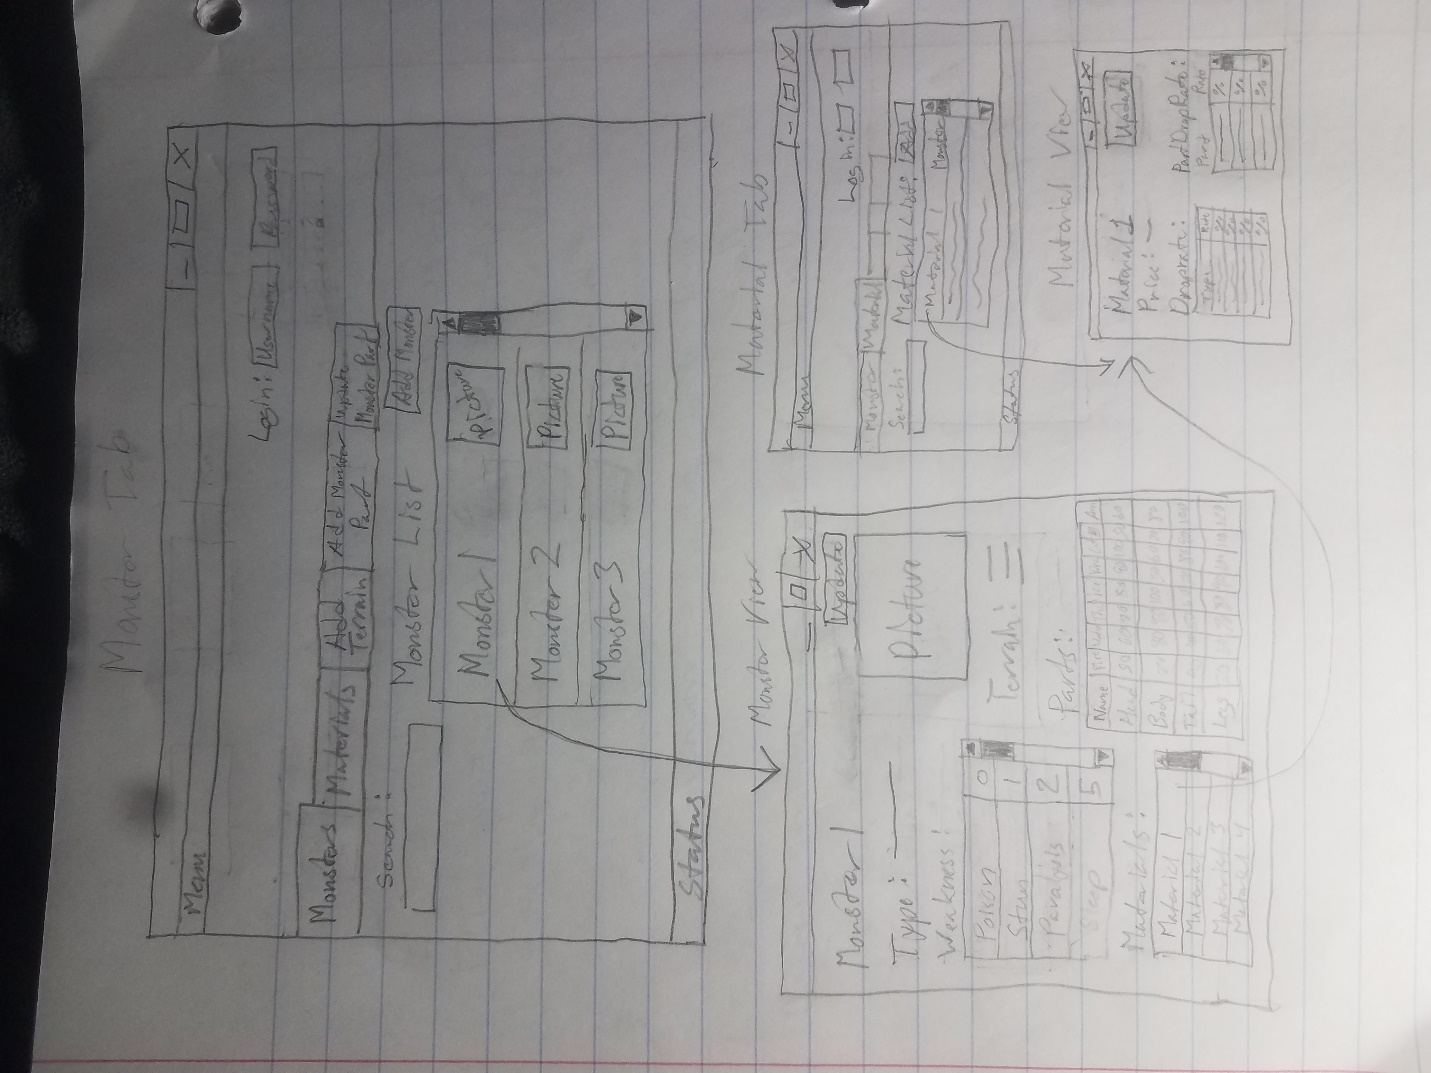 Monster Tab
Menu - X
Login: Username Password
Monsters Materials Add Terrain Add Monster Part Update Monster Part
Search: Monster List Add Monster
Monster 1 Picture
Monster 2 Picture
Monster 3 Picture
Status
Monster View
- X
Monster 1 Update
Type: Picture
Weakness:
Poison 0
Stun 1
Paralysis 2
Sleep 5
Terrain:
Parts:
Name
Head
Body
Tail
Legs
Materials:
Material 1
Material 2
Material 3
Material 4
Matarial Tab
Menu - X
Login:
Monster Material
Search: Material List: Add
Material 1 Monster
Status
Matarial View
- X
Material 1 Update
Price:
Droprate: Part DropRate:
Part Rate
%
%
%
%
%
%
%